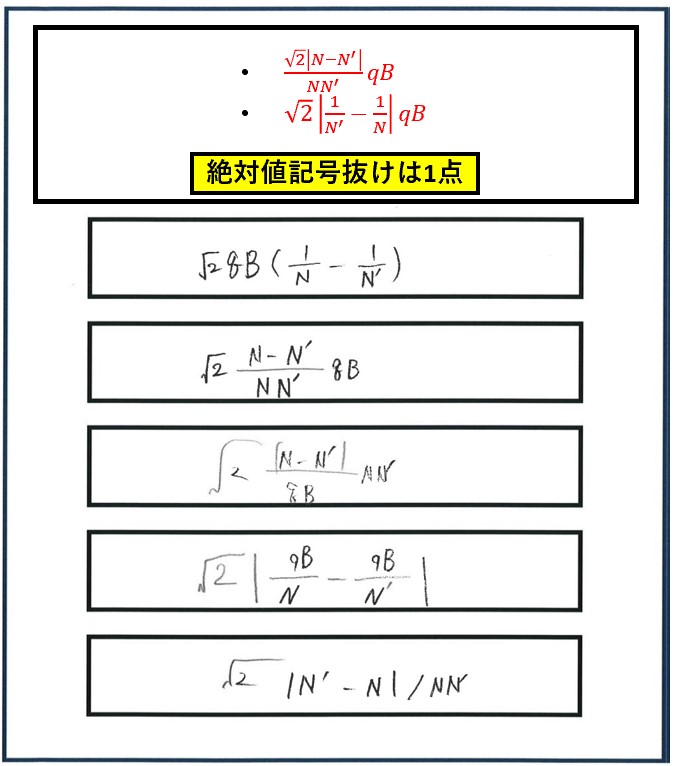 • √2|N−N′|/NN′ qB
• √2 |1/N′ − 1/N| qB
絶対値記号抜けは1点
√2 qB (1/N − 1/N′)
√2 N−N′/NN′ qB
√2 |N−N′|/qB NN′
√2 | qB/N − qB/N′ |
√2 |N′ − N| / NN′